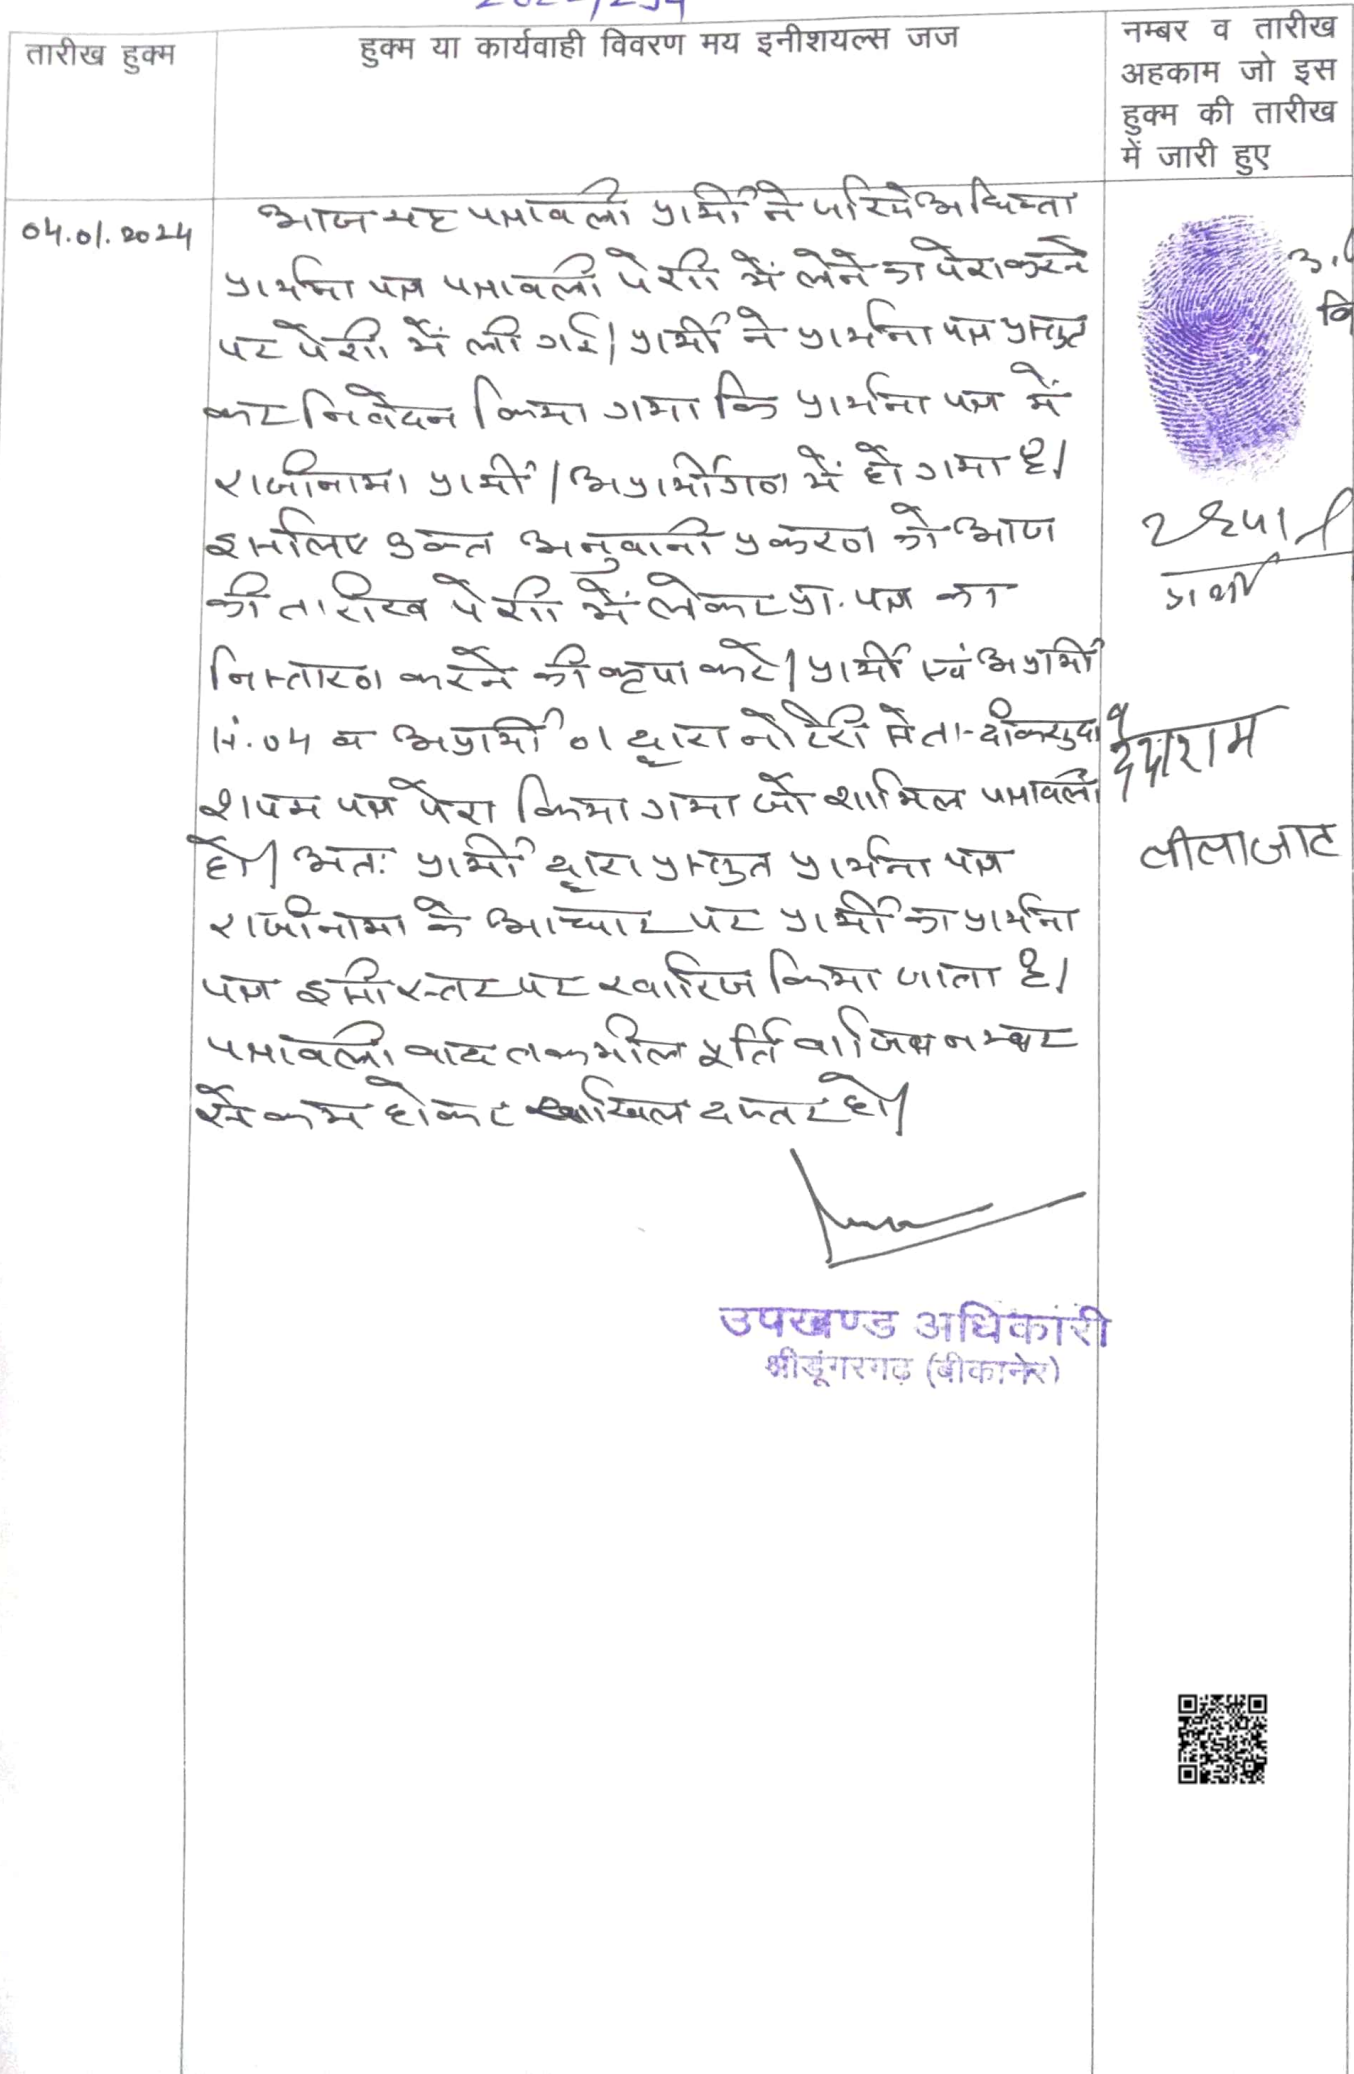 तारीख हुक्म
हुक्म या कार्यवाही विवरण मय इनीशयल्स जज
नम्बर व तारीख
अहकाम जो इस
हुक्म की तारीख
में जारी हुए
04.01.2024
आज यह पत्रावली प्रार्थी ने जरिये अधिवक्ता
प्रार्थना पत्र पत्रावली पेशी में लेने का पेश करने
पर पेशी में ली गई। प्रार्थी ने प्रार्थना पत्र प्रस्तुत
कर निवेदन किया गया कि प्रार्थना पत्र में
राजीनामा प्रार्थी/अप्रार्थीगण में हो गया है।
इसलिए उक्त अनुवानी प्रकरण को आज
की तारीख पेशी में लेकर प्रा. पत्र का
निस्तारण करने की कृपा करे। प्रार्थी एवं अप्रार्थी
सं.04 व अप्रार्थी 01 द्वारा नोटेरी से तस्दीकशुदा
शपथ पत्र पेश किया गया जो शामिल पत्रावली
हो। अतः प्रार्थी द्वारा प्रस्तुत प्रार्थना पत्र
राजीनामा के आधार पर प्रार्थी का प्रार्थना
पत्र इसी स्तर पर खारिज किया जाता है।
पत्रावली बाद तकमील पूर्ति वाजिब नम्बर
से कम होकर दाखिल दफ्तर हो।
प्रार्थी
लीलाजाट
उपखण्ड अधिकारी
श्रीडूंगरगढ़ (बीकानेर)